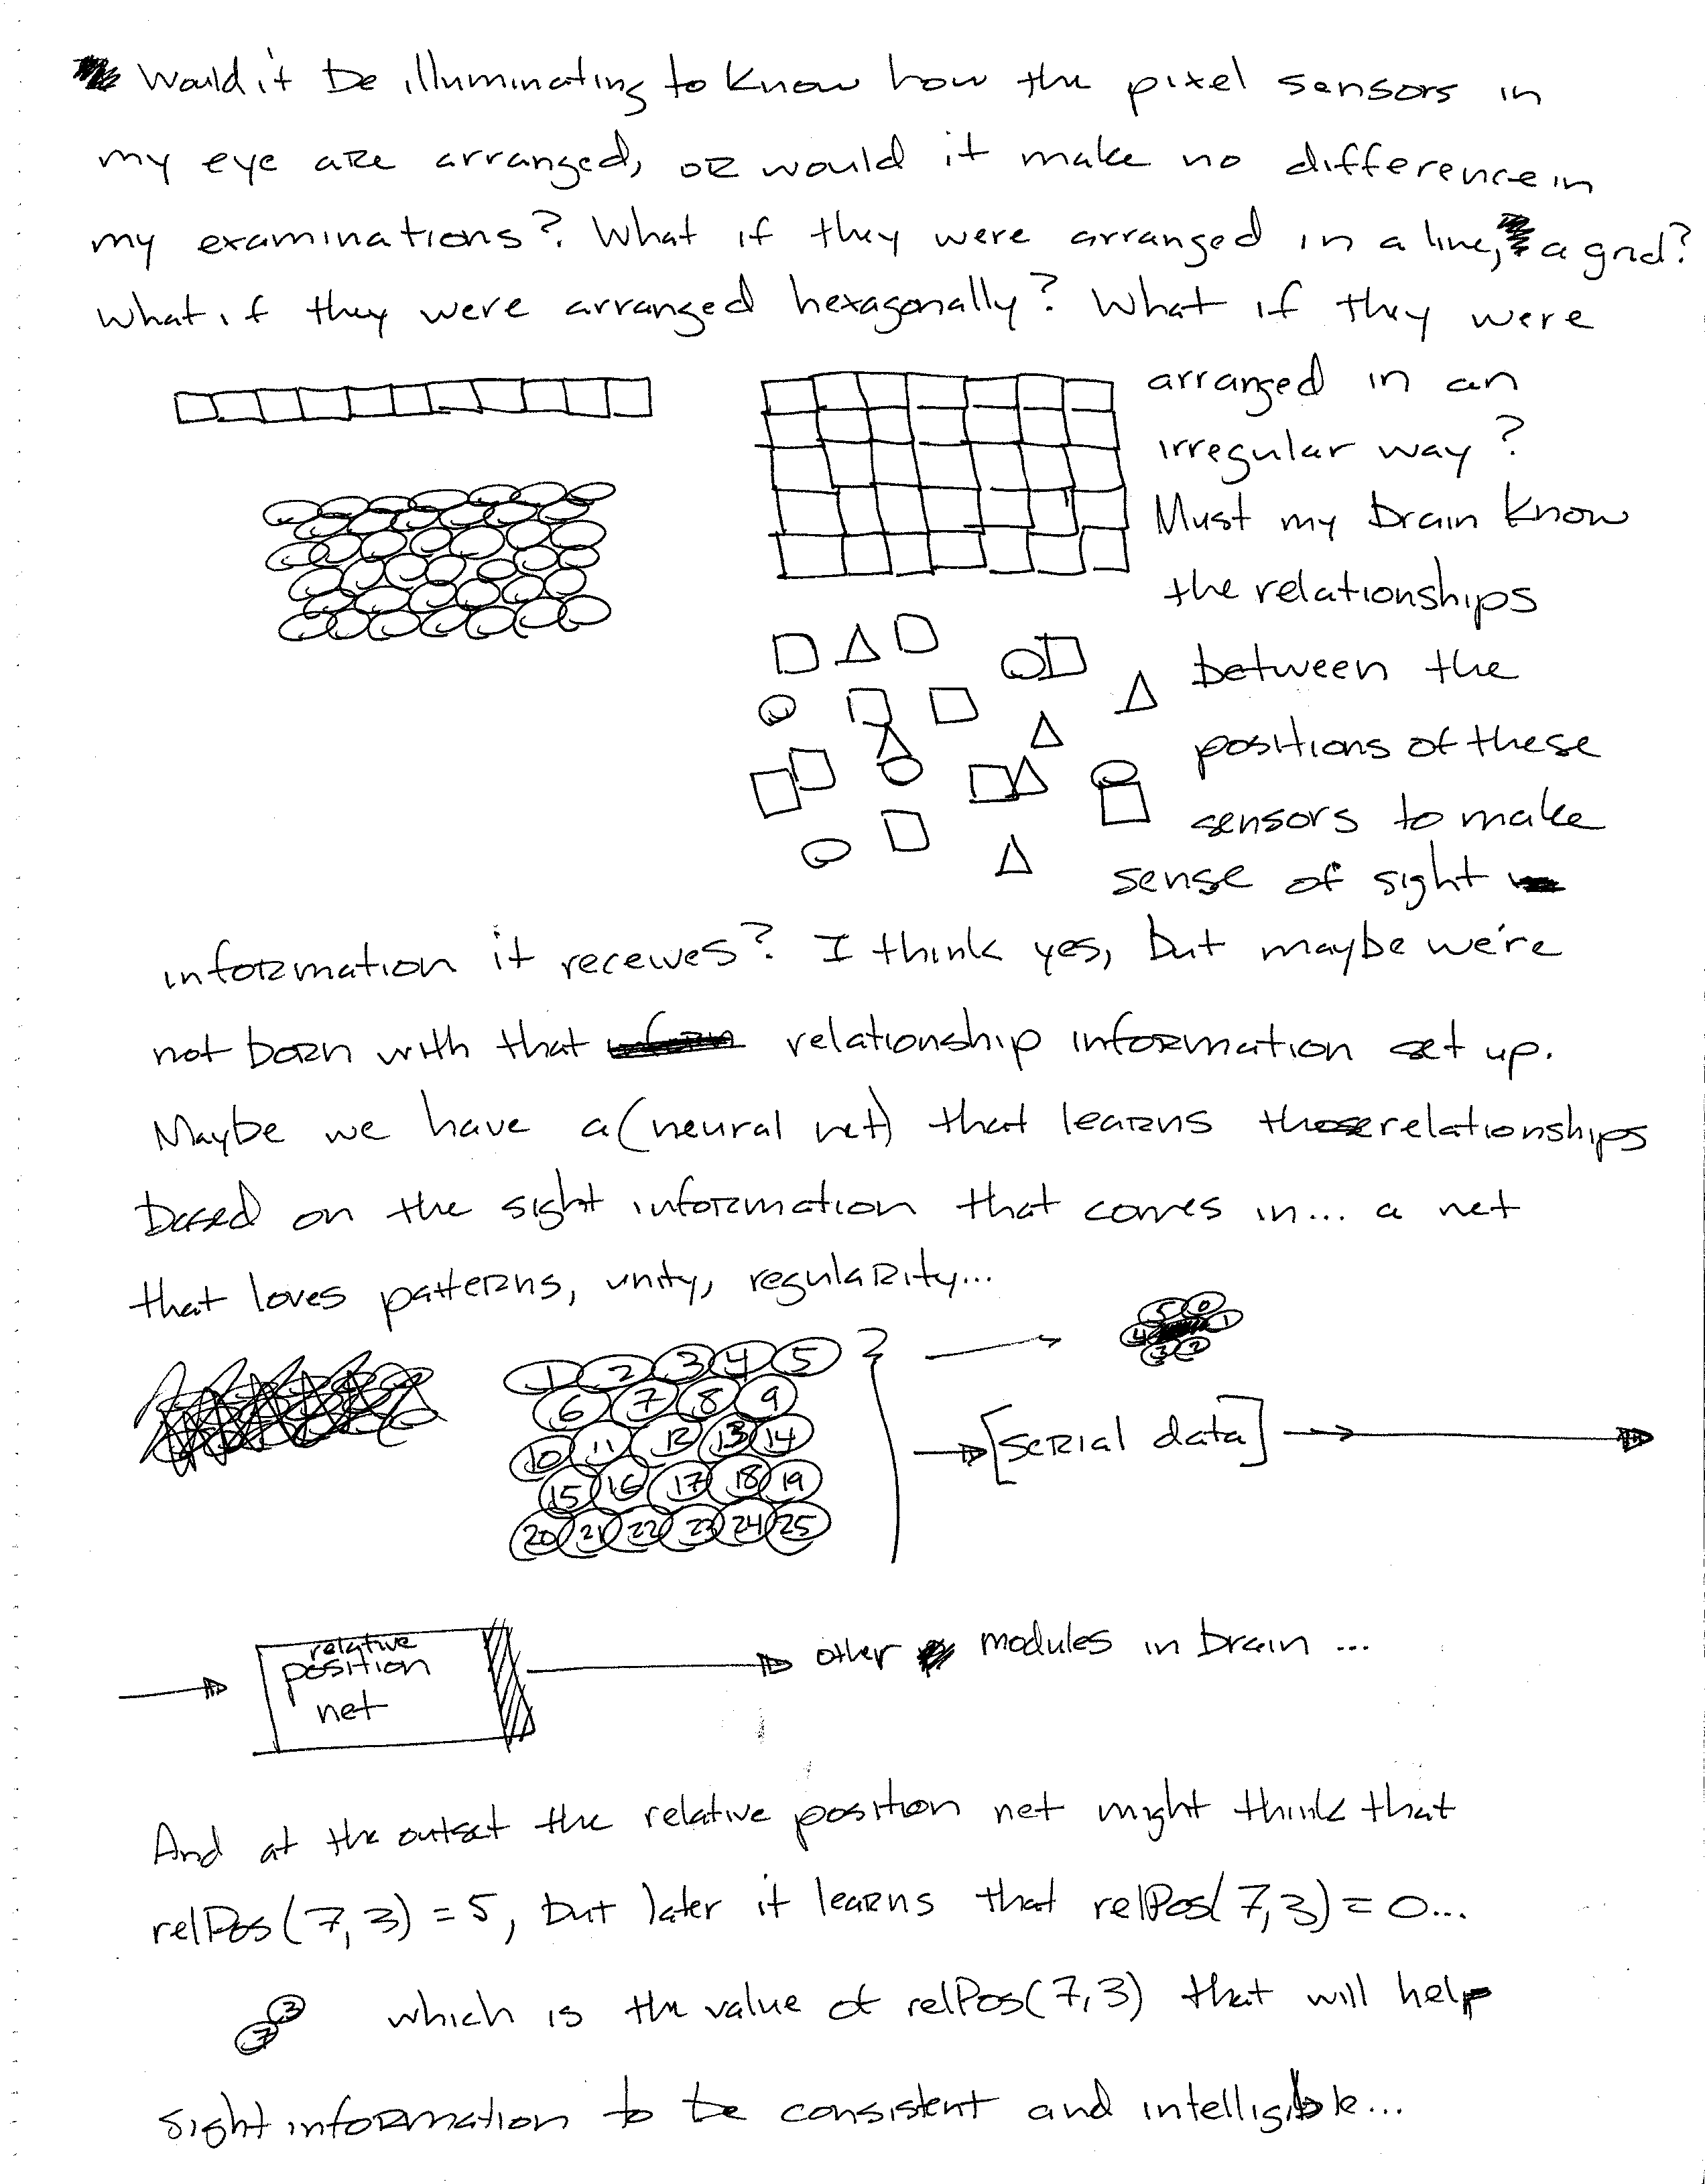 Would it be illuminating to know how the pixel sensors in
my eye are arranged, or would it make no difference in
my examinations? What if they were arranged in a line, a grid?
What if they were arranged hexagonally? What if they were
arranged in an
irregular way?
Must my brain know
the relationships
between the
positions of these
sensors to make
sense of sight
information it receives? I think yes, but maybe we're
not born with that relationship information set up.
Maybe we have a (neural net) that learns those relationships
based on the sight information that comes in... a net
that loves patterns, unity, regularity...
5 0
4 1
3 2
1 2 3 4 5
6 7 8 9
10 11 12 13 14
15 16 17 18 19
20 21 22 23 24 25
[serial data]
relative
position
net
other modules in brain ...
And at the outset the relative position net might think that
relPos(7,3) = 5, but later it learns that relPos(7,3) = 0...
3
7
which is the value of relPos(7,3) that will help
sight information to be consistent and intelligible...